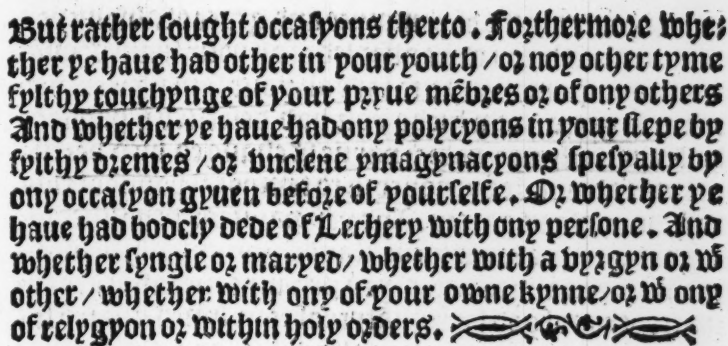 But rather sought occasyons therto. Forthermore whe-
ther ye haue had other in your youth / or noy other tyme
fylthy touchynge of your pryue mẽbres or of ony others
And whether ye haue had ony polycyons in your slepe by
fylthy dremes / or vnclene ymagynacyons spesyally by
ony occasyon gyuen before of yourselfe. Or whether ye
haue had bodely dede of Lechery with ony persone. And
whether syngle or maryed / whether with a vyrgyn or wͭ
other / whether with ony of your owne kynne / or wͭ ony
of relygyon or within holy orders.